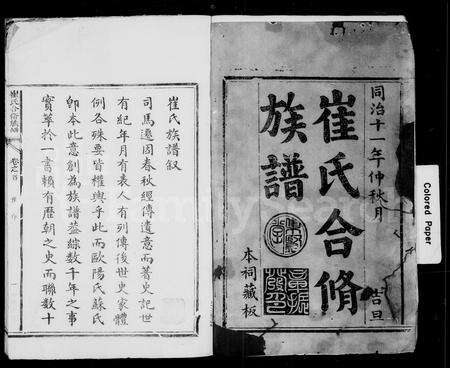 同治十一年仲秋月
吉旦
崔氏合修
族譜
本祠藏板
崔氏族譜叙
司馬遷因春秋經傳遺意而著史記世
有紀年月有表人有列傳後世史家體
例各殊要皆權輿乎此而歐陽氏蘇氏
卽本此意創為族譜葢綜數千年之事
實萃於一書賴有歷朝之史而聯數十
崔氏合修族譜
卷之首
Colored Paper